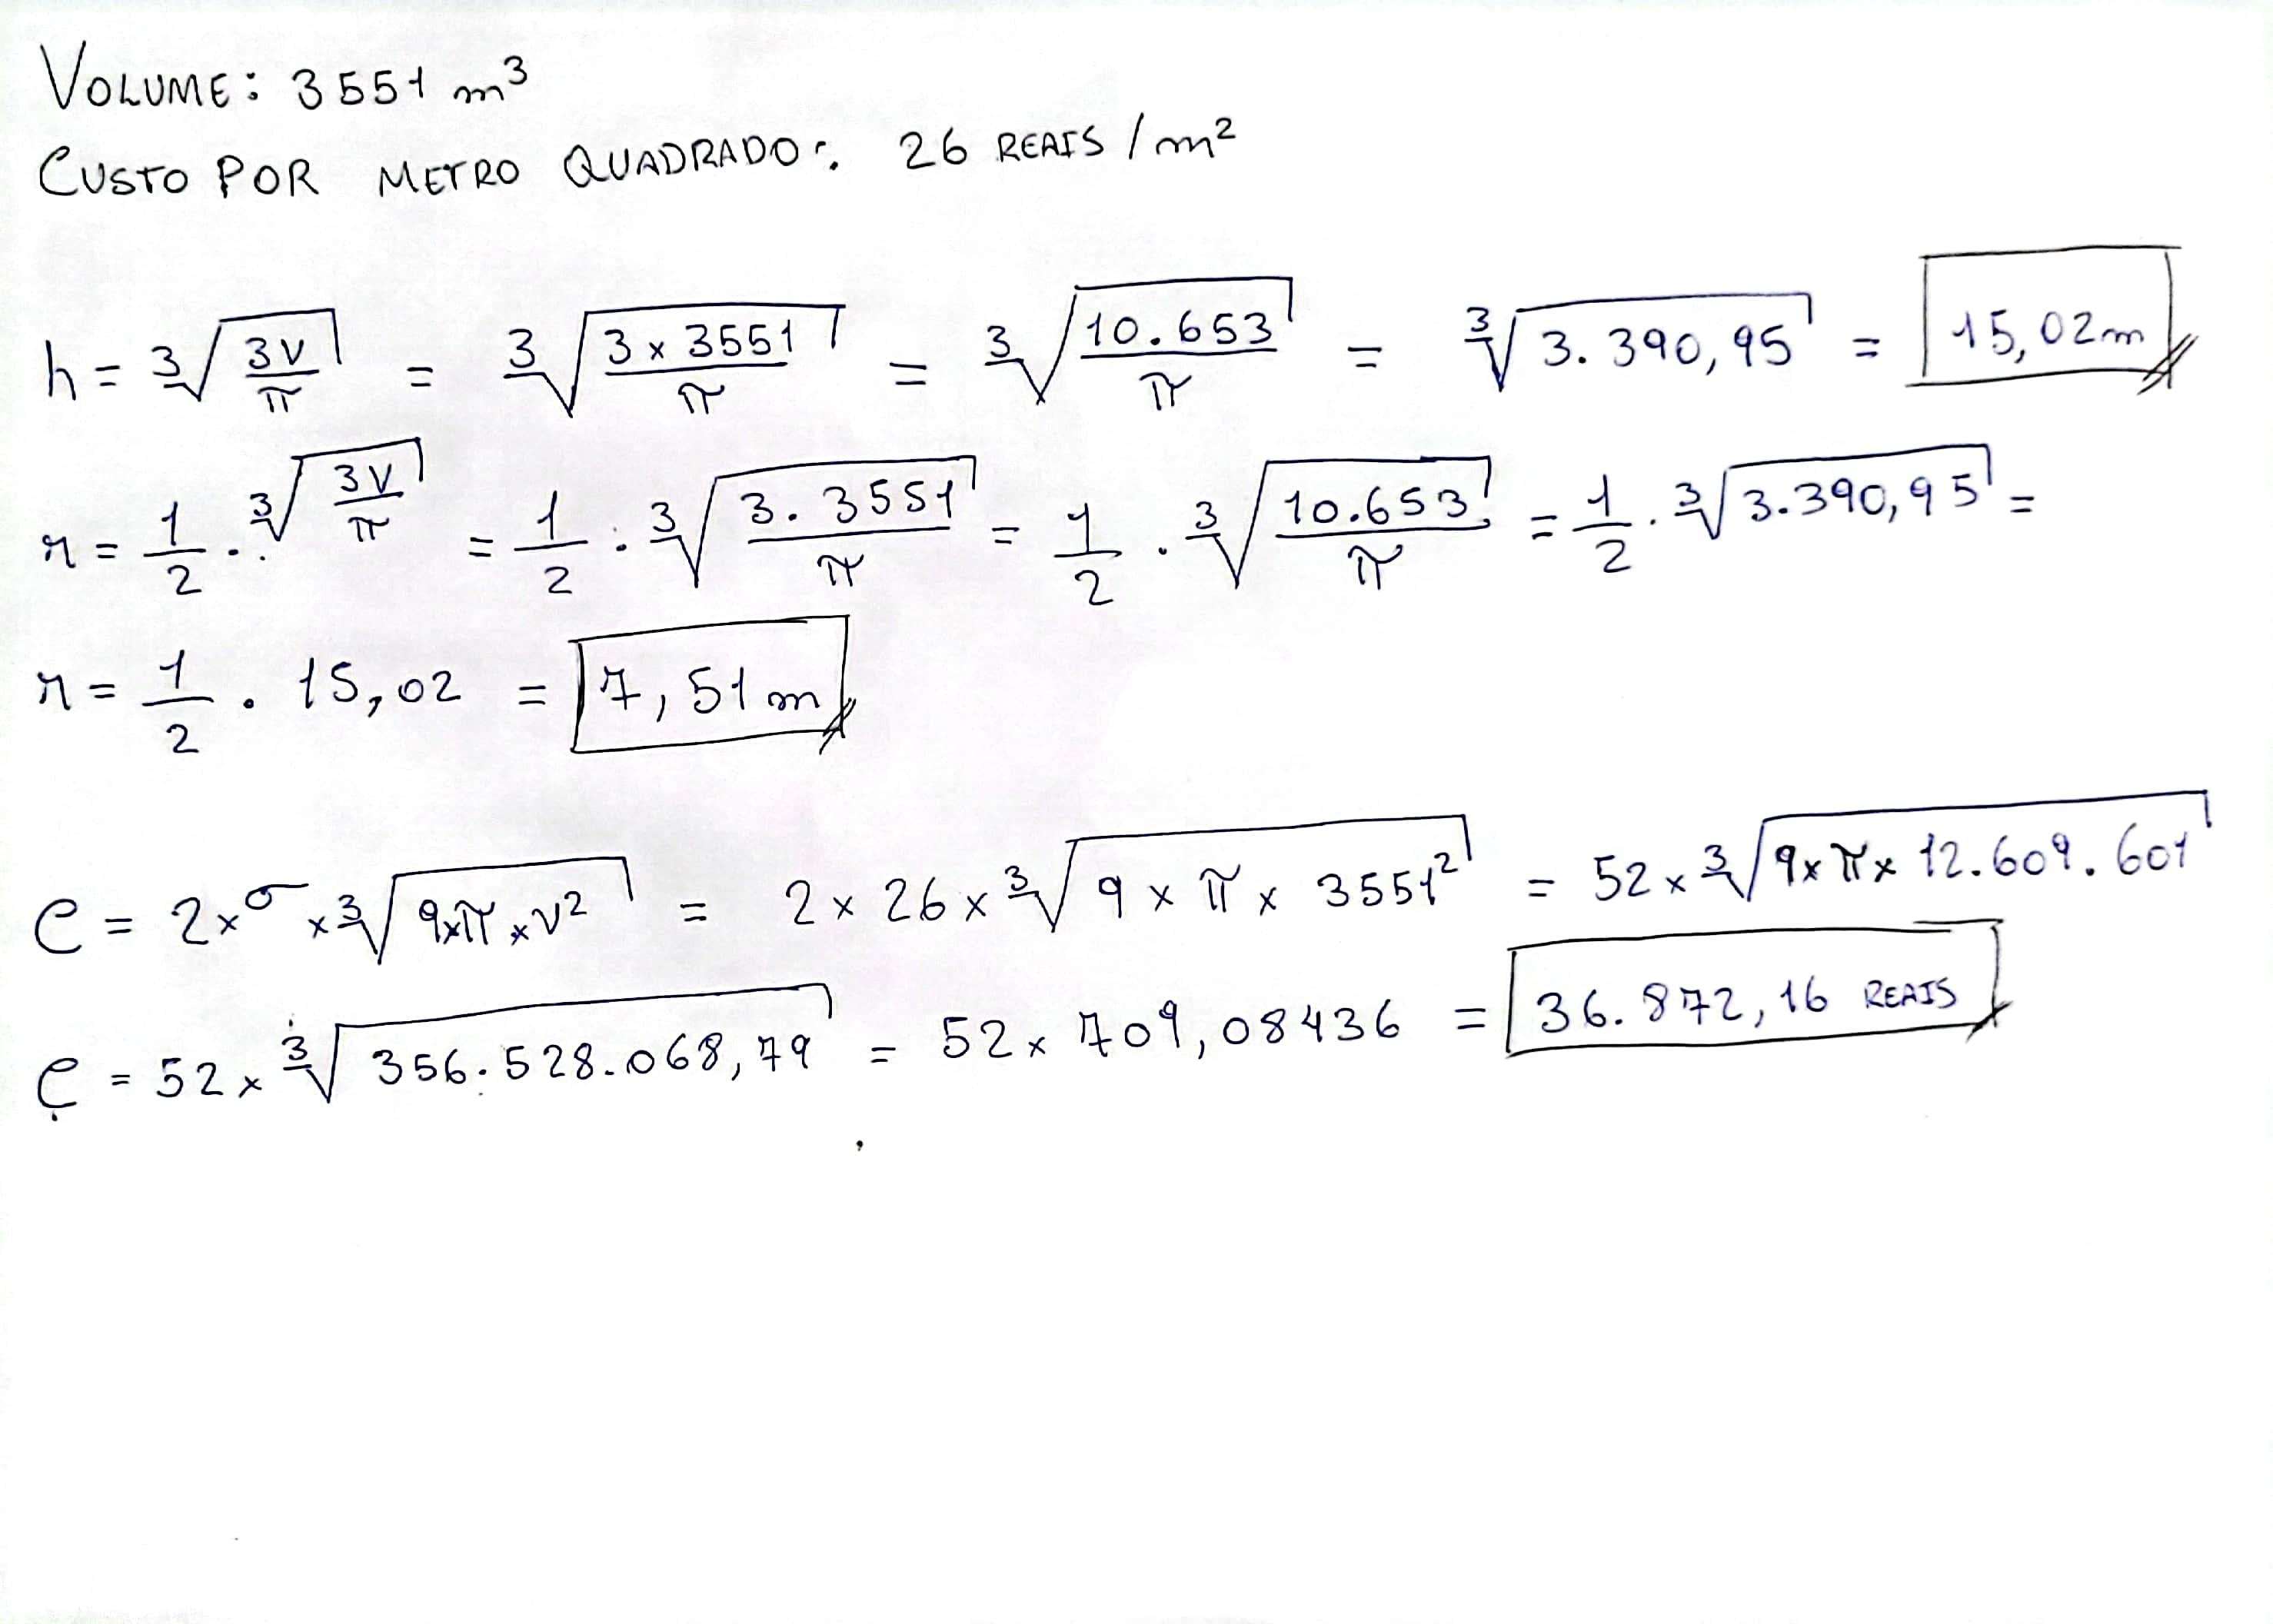 VOLUME: 3551 m³
CUSTO POR METRO QUADRADO: 26 REAIS / m²
h = ∛(3V/π) = ∛(3 x 3551/π) = ∛(10.653/π) = ∛3.390,95 = 15,02m
r = 1/2 . ∛(3V/π) = 1/2 . ∛(3. 3551/π) = 1/2 . ∛(10.653/π) = 1/2 . ∛3.390,95 =
r = 1/2 . 15,02 = 7,51 m
C = 2 x σ x ∛(9xπxV²) = 2 x 26 x ∛(9 x π x 3551²) = 52 x ∛(9x π x 12.609.601)
C = 52 x ∛356.528.068,79 = 52 x 709,08436 = 36.872,16 REAIS